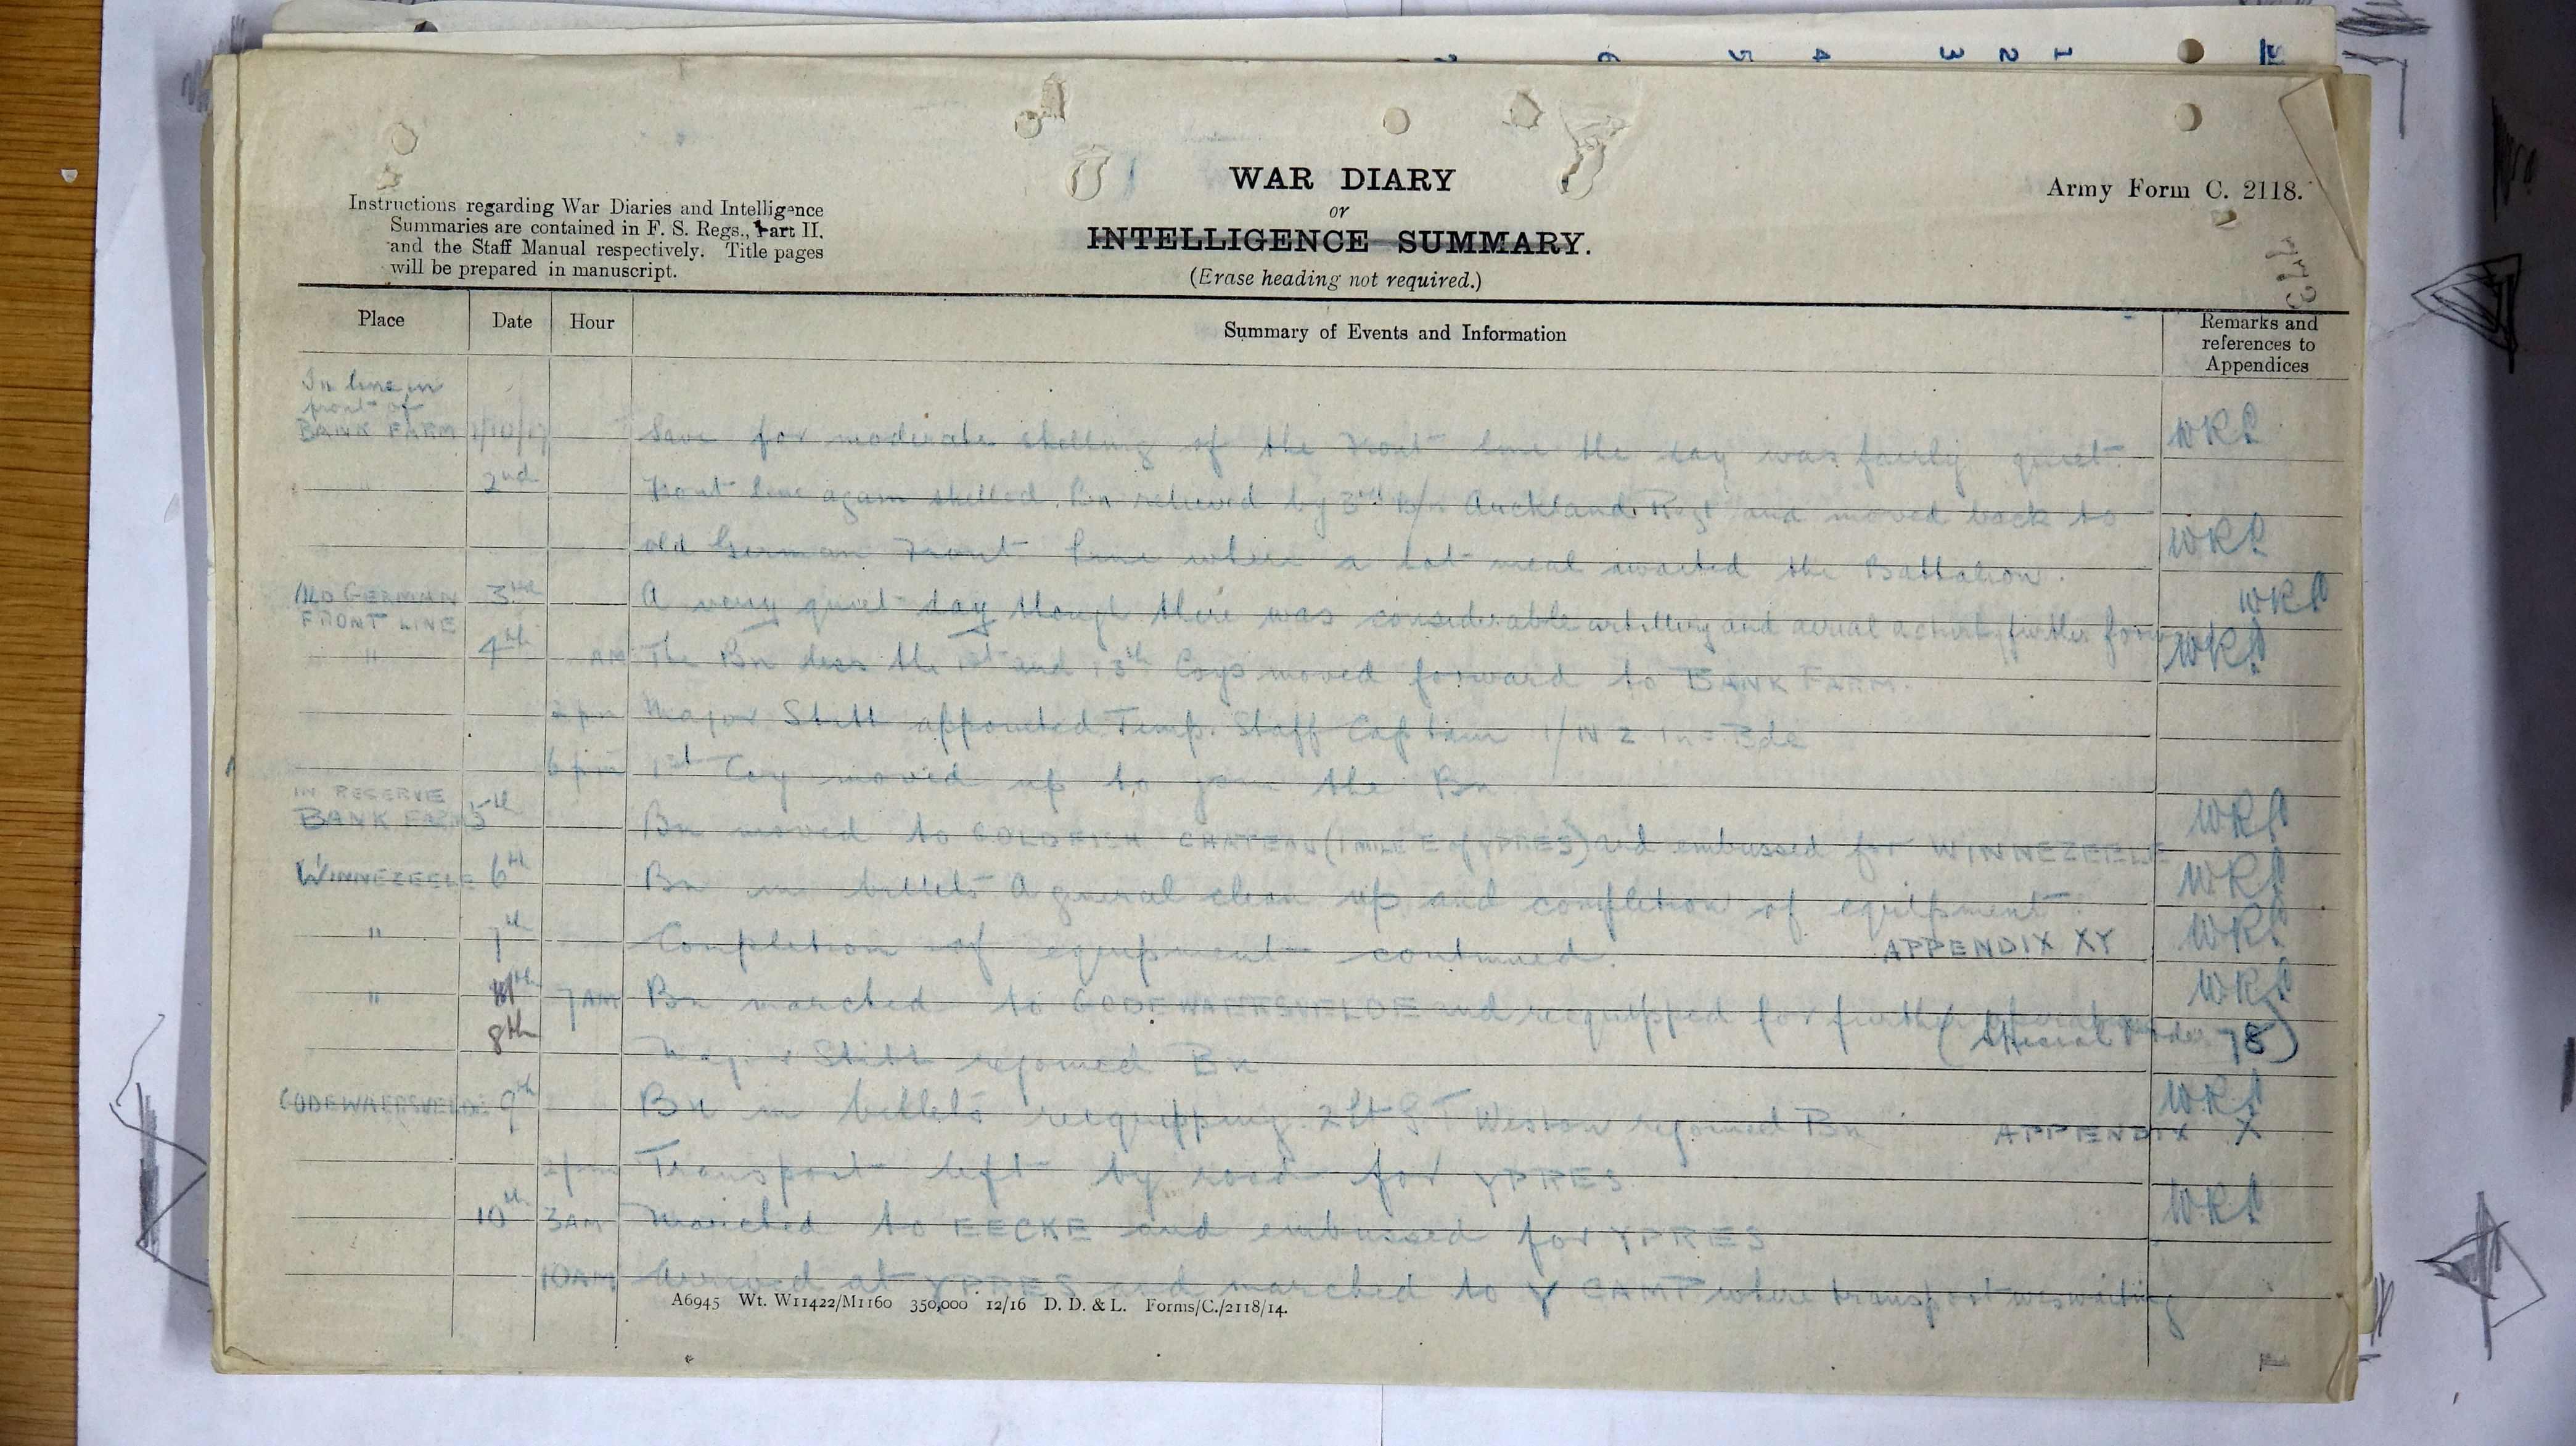 WAR DIARY
or
INTELLIGENCE SUMMARY.
(Erase heading not required.)
Army Form C. 2118.
Instructions regarding War Diaries and Intelligence
Summaries are contained in F. S. Regs., Part II.
and the Staff Manual respectively. Title pages
will be prepared in manuscript.
Place Date Hour Summary of Events and Information Remarks and
references to
Appendices
In line in
front of
BANK FARM 1/10/17 Save for moderate shelling of the Front line the day was fairly quiet.
" 2nd Front line again shelled. Bn relieved by 3rd Bn Auckland Regt and moved back to
old German Front line where a hot meal awaited the Battalion.
OLD GERMAN 3rd A very quiet day though there was considerable artillery and aerial activity further
FRONT LINE
" 4th AM The Bn less the 1st and 13th Coys moved forward to BANK FARM.
2pm Major Stitt appointed Temp. Staff Captain 1/NZ Inf Bde
6pm 1st Coy moved up to join the Bn
IN RESERVE
BANK FARM 5th Bn moved to GOLDFISH CHATEAU (1 MILE E of YPRES) and embussed for WINNEZEELE
WINNEZEELE 6th Bn in billets A general clean up and completion of equipment.
" 7th Completion of equipment continued. APPENDIX XY
" 8th 7AM Bn marched to GODEWAERSVELDE and reequipped for further operations
(Special Order 78)
Major Stitt rejoined Bn
GODEWAERSVELDE 9th Bn in billets reequipping. 2Lt Weston rejoined Bn APPENDIX X
Transport left by road for YPRES
10th 3AM Marched to EECKE and embussed for YPRES
10AM Arrived at YPRES and marched to Y CAMP where transport was waiting
A6945 Wt. W11422/M1160 350,000 12/16 D. D. & L. Forms/C./2118/14.